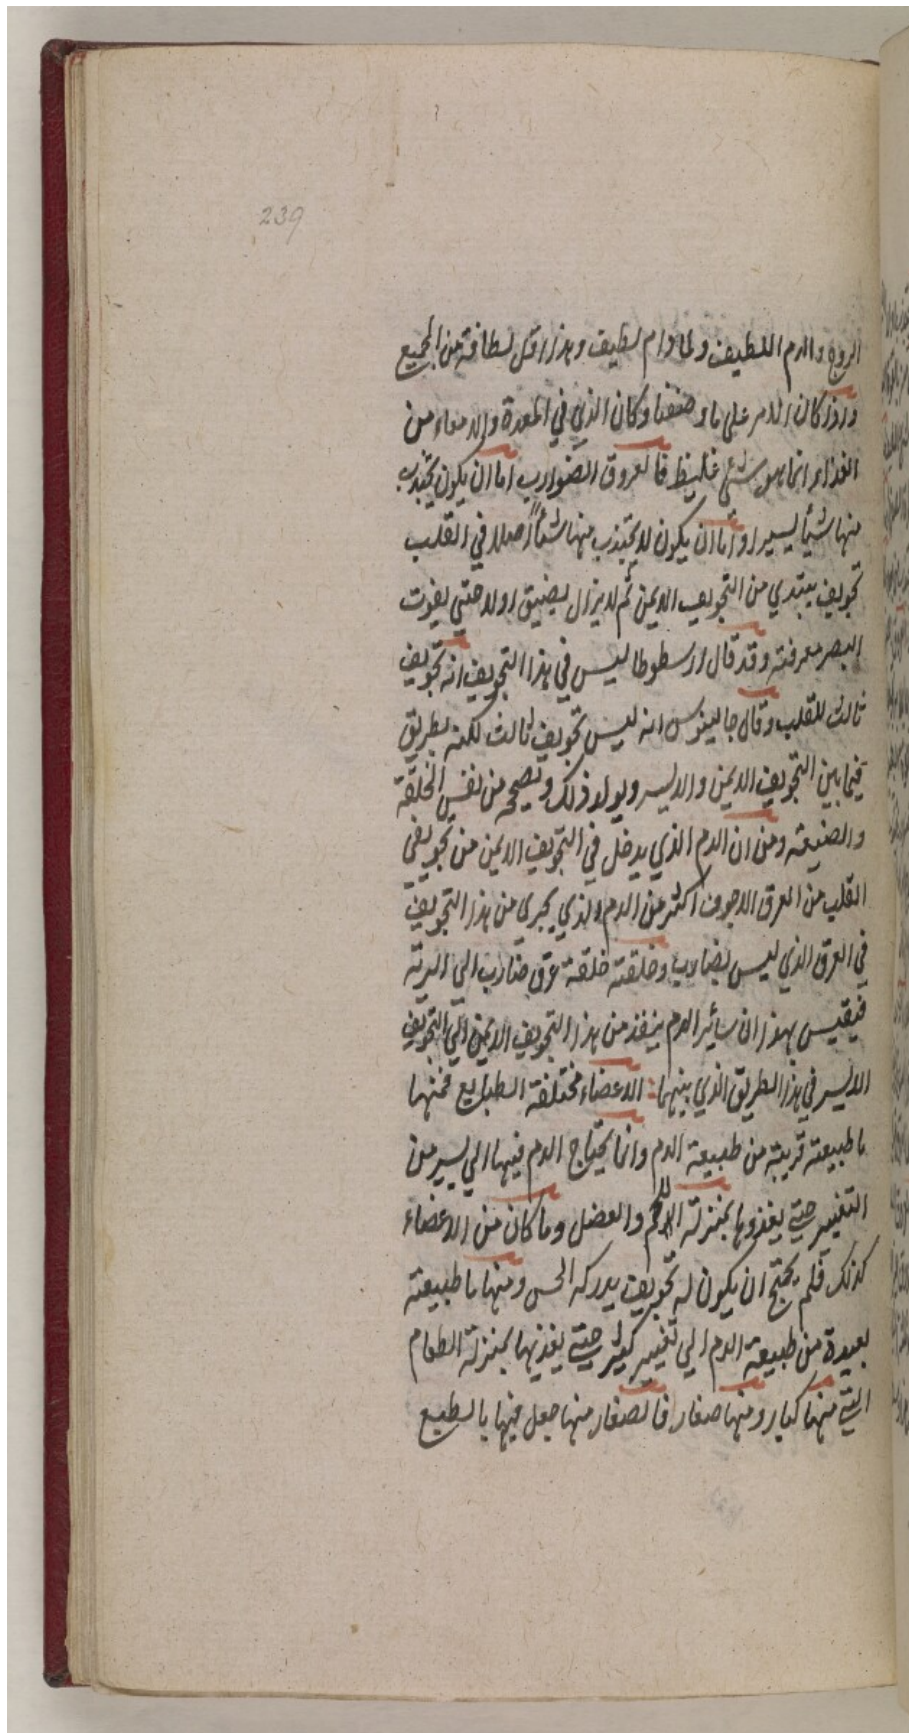 239
الروح والدم اللطيف ولما دام لطيف وهذا اقل لطافة من الجميع
واذا كان الامر على ما وصفنا وكان الذي في المعدة والامعاء من
الغذاء انما هو شئ غليظ فالعروق الضوارب اما ان يكون يجتذب
منها شيئا يسيرا واما ان يكون لا يجتذب منها شيئاً اصلا في القلب
تجويف يبتدي من التجويف الايمن ثم لا يزال يضيق اولا حتي يفوت
البصر معرفته وقد قال ارسطوطاليس في هذا التجويف انه تجويف
ثالث للقلب وقال جالينوس انه ليس تجويف ثالث لكنه بطريق
فيما بين التجويف الايمن والايسر ويولد ذلك ويصححه من نفس الخلقة
والصنيعة ومن ان الدم الذي يدخل في التجويف الايمن من تجويفي
القلب من العرق الاجوف اكثر من الدم ولذي يجري من هذا التجويف
في العرق الذي ليس بضارب وخلقته خلقة عرق ضارب الي الرية
فيقيس بهذا ان سائر الدم ينفذ من هذا التجويف الايمن الي التجويف
الايسر في هذا الطريق الذي بينهما: الاعضاء مختلفة الطبايع فمنها
ما طبيعته قريبة من طبيعة الدم وانما يحتاج الدم فيها الي يسير من
التغيير حتي يغذوها بمنزلة اللحم والعضل وما كان من الاعضاء
كذلك فلم يحتج ان يكون له تجويف يدركه الحس ومنها ما طبيعته
بعيدة من طبيعة الدم الي تغيير كثير حتي يغذيها بمنزلة الطعام
التي منها كبار ومنها صغار فالصغار منها جعل فيها بالطبع